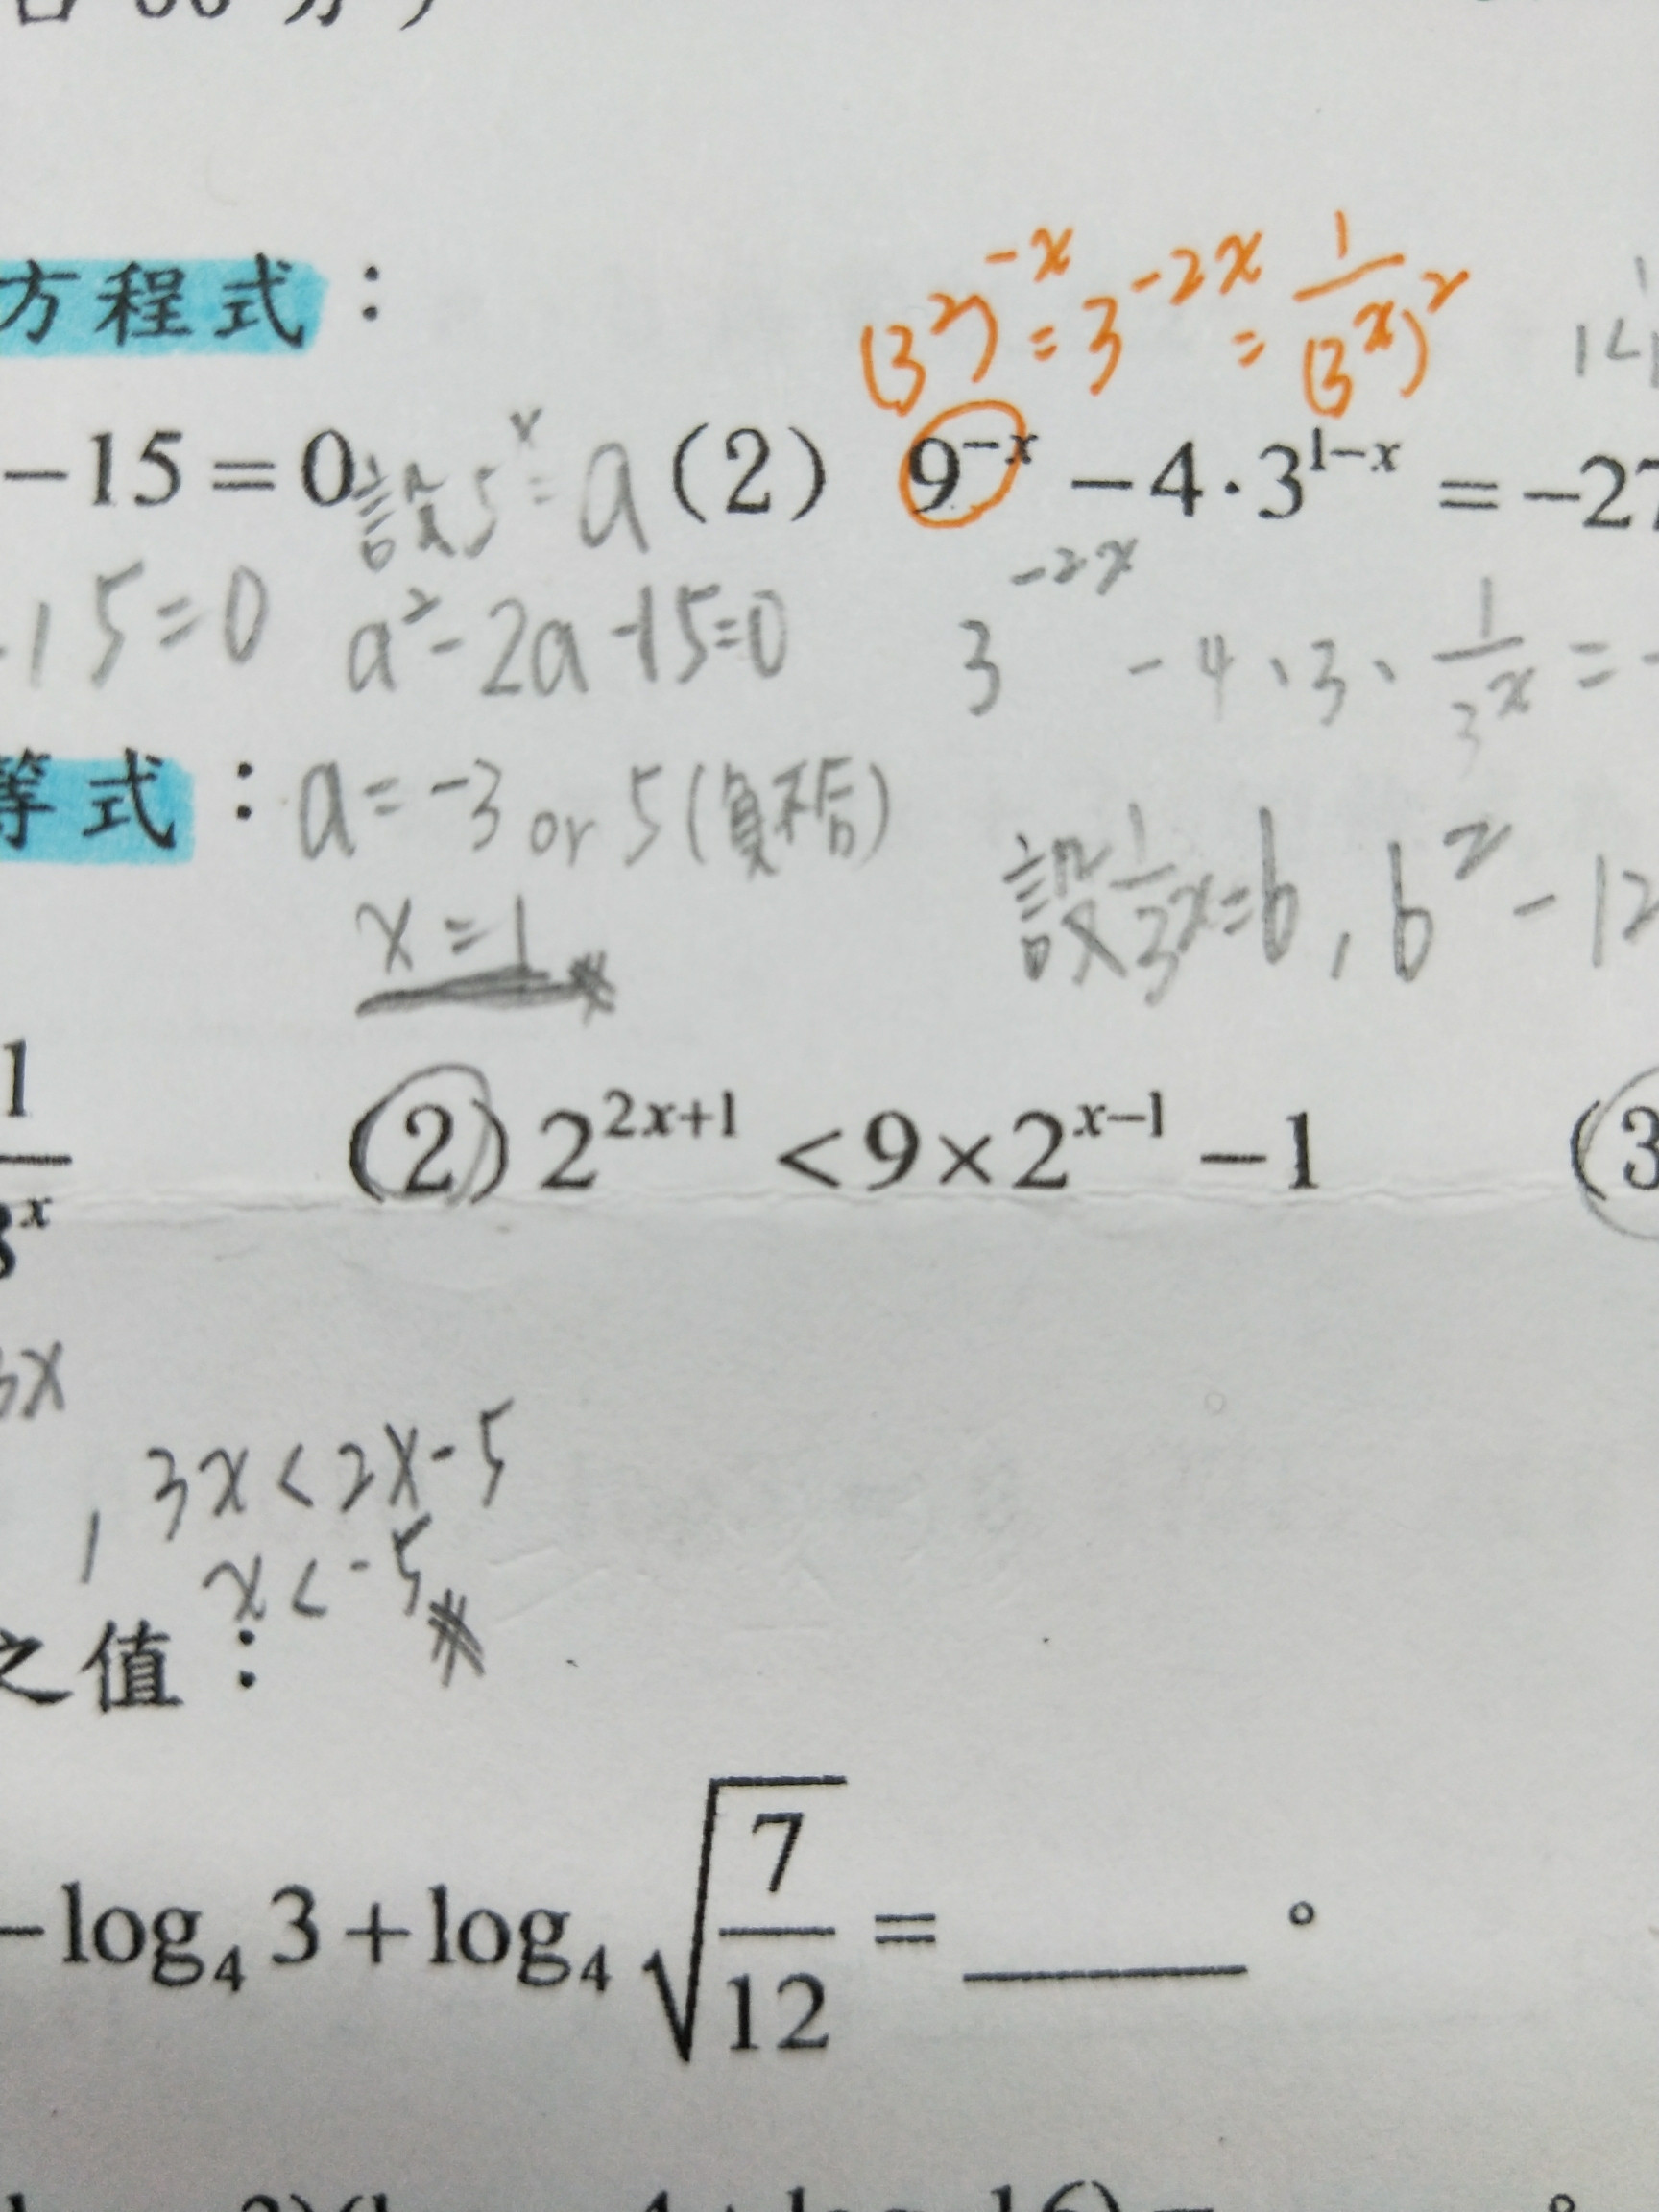 方程式：
(3²)⁻ˣ = 3⁻²ˣ = 1/(3ˣ)²
−15 = 0 設5ˣ = a (2) 9⁻ˣ − 4·3¹⁻ˣ = −27
15 = 0 a² − 2a − 15 = 0 3⁻²ˣ − 4·3·1/3ˣ = −
等式：a = −3 or 5 (負不合)
設1/3ˣ = b, b² − 12
x = 1
1/8ˣ (2) 2²ˣ⁺¹ < 9 × 2ˣ⁻¹ − 1 (3
3x
, 3x < 2x − 5
x < −5
之值：
−log₄ 3 + log₄ √(7/12) = ______ 。